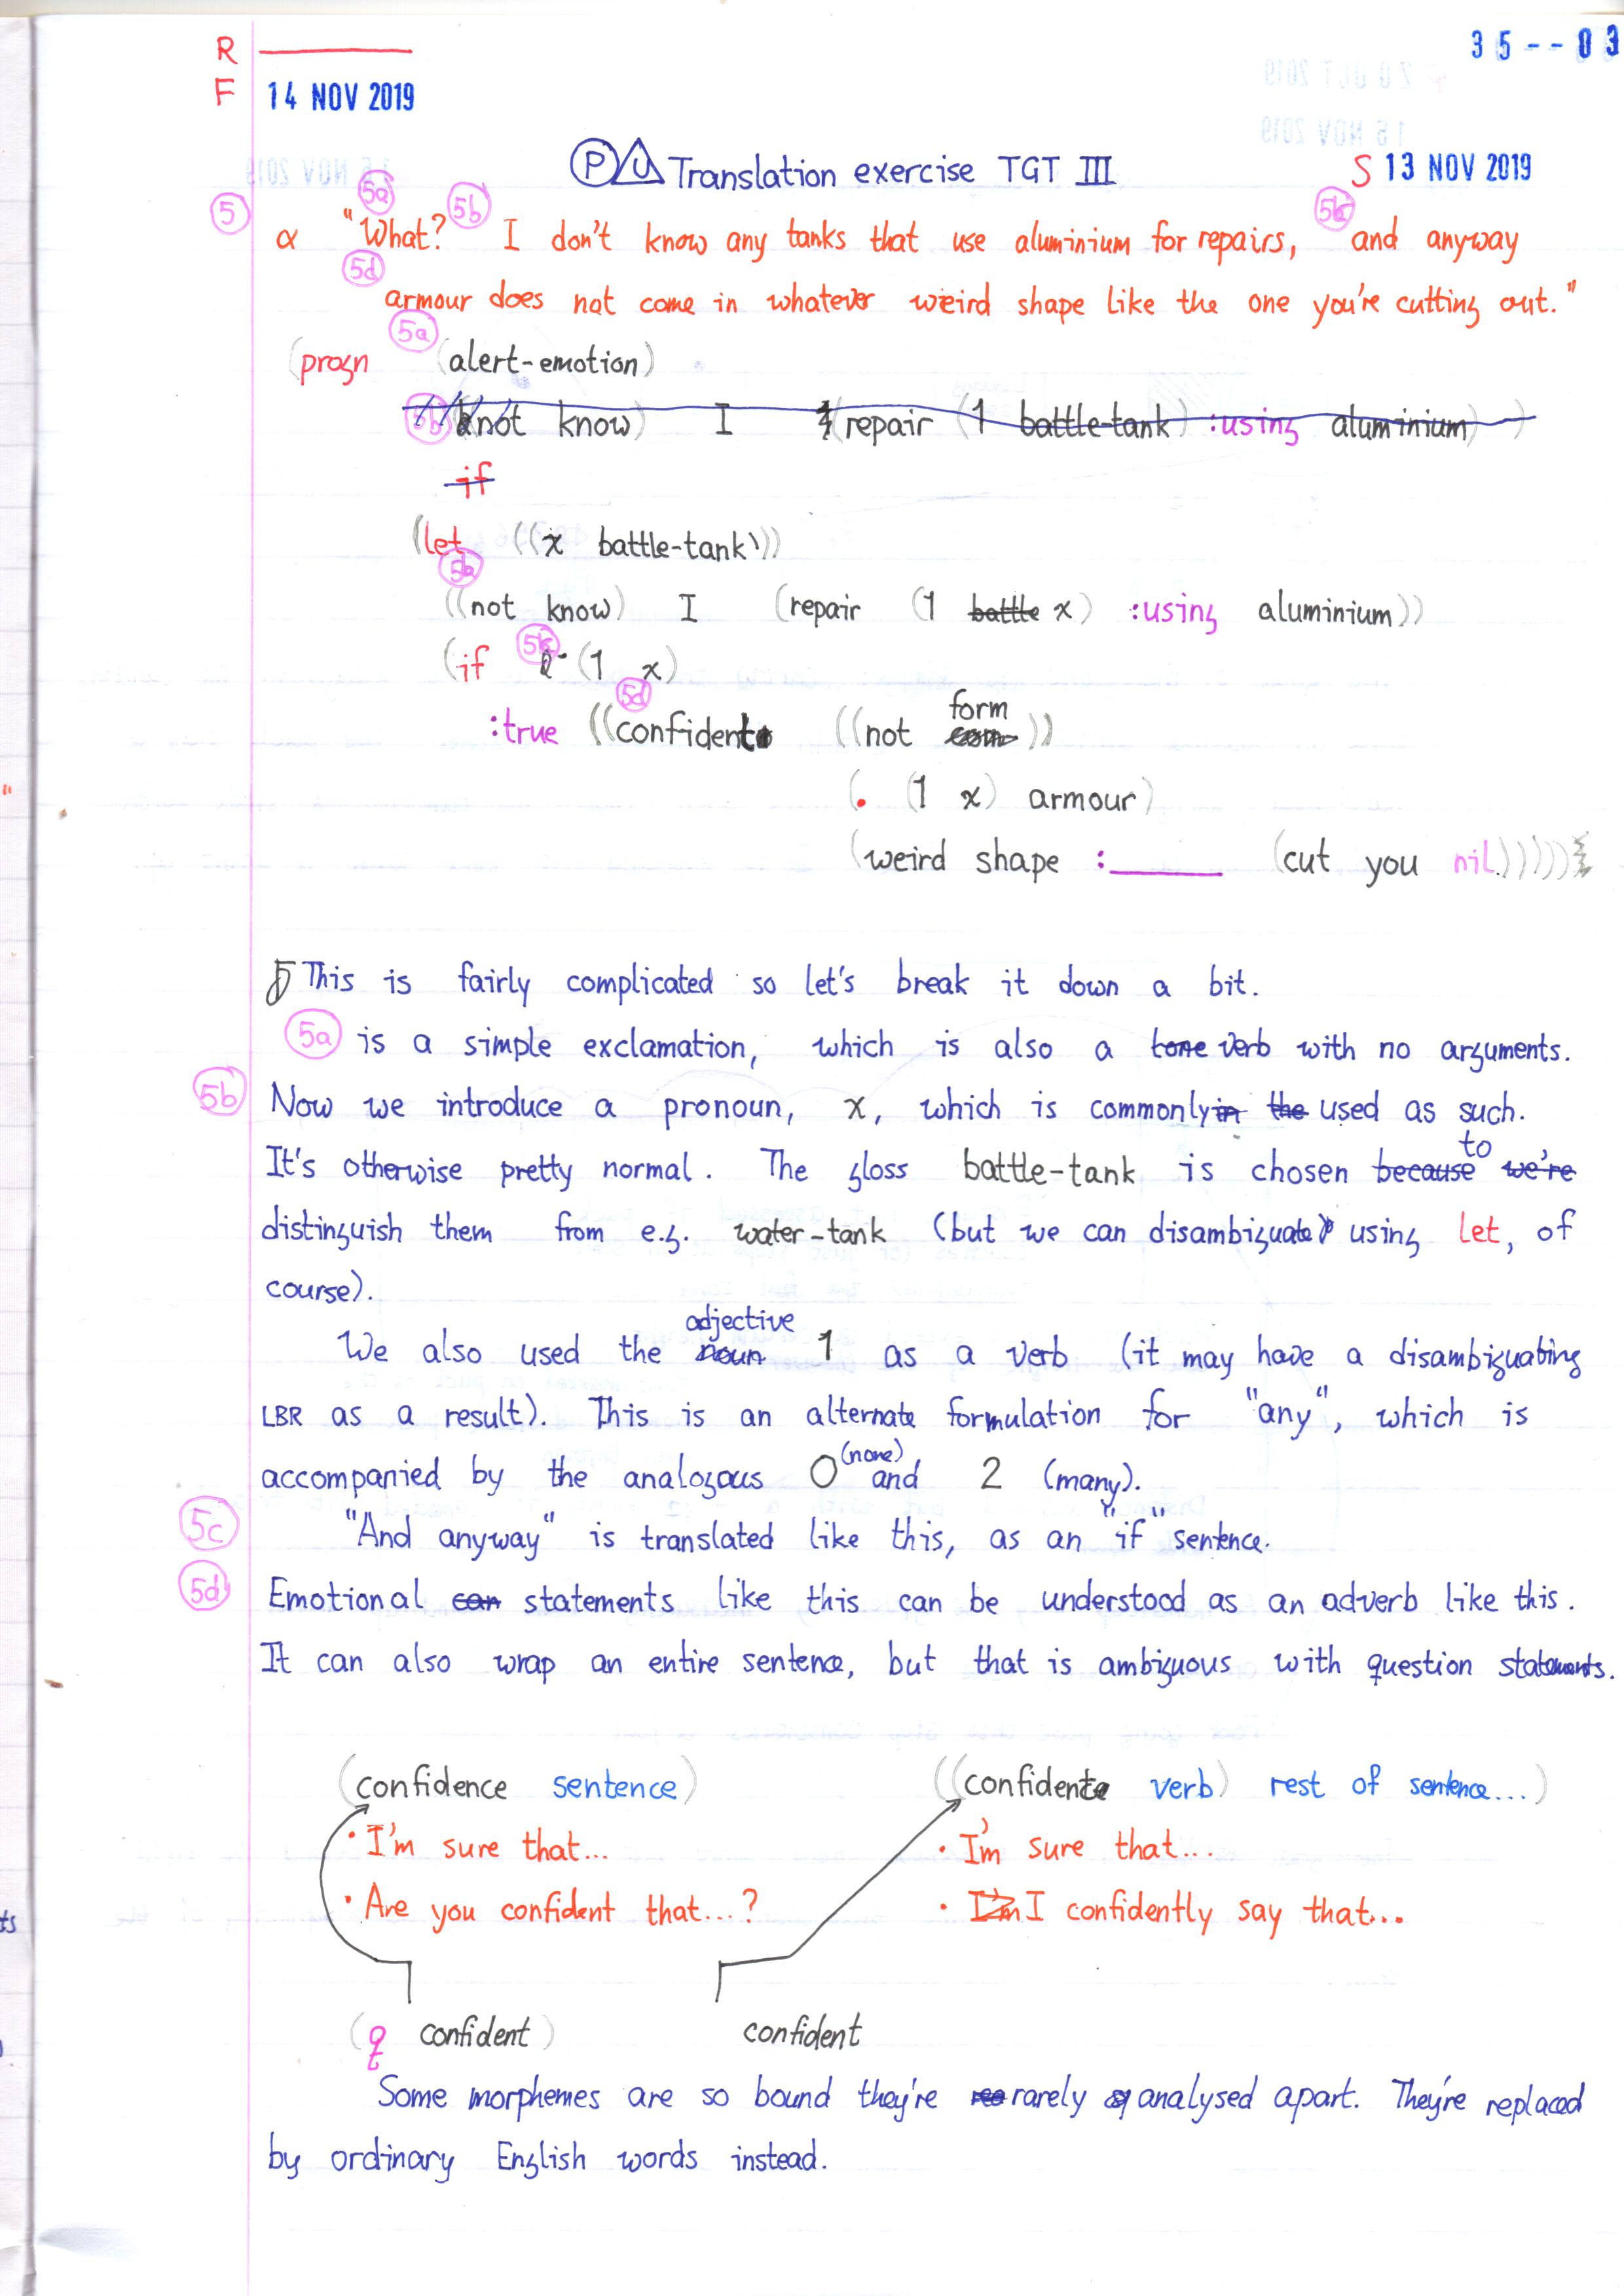 R
35--03
F 14 NOV 2019
PU Translation exercise TGT III S 13 NOV 2019
5a 5b 5c
5 α "What? I don't know any tanks that use aluminium for repairs, and anyway
5d
armour does not come in whatever weird shape like the one you're cutting out."
5a
(progn (alert-emotion)
5b ((not know) I (repair (1 battle-tank) :using aluminium))
if
(let ((x battle-tank))
5b
((not know) I (repair (1 battle x) :using aluminium))
(if 5c (1 x)
5d
:true ((confident ((not form))
(. (1 x) armour)
(weird shape :______ (cut you nil)))))
This is fairly complicated so let's break it down a bit.
5a is a simple exclamation, which is also a tone verb with no arguments.
5b Now we introduce a pronoun, x, which is commonly in the used as such.
It's otherwise pretty normal. The gloss battle-tank is chosen because to we're
distinguish them from e.g. water-tank (but we can disambiguate using let, of
course).
We also used the noun adjective 1 as a verb (it may have a disambiguating
LBR as a result). This is an alternate formulation for "any", which is
accompanied by the analogous 0 (none) and 2 (many).
5c "And anyway" is translated like this, as an "if" sentence.
5d Emotional can statements like this can be understood as an adverb like this.
It can also wrap an entire sentence, but that is ambiguous with question statements.
(confidence sentence) ((confident verb) rest of sentence...)
· I'm sure that... · I'm sure that...
· Are you confident that...? · I'm I confidently say that...
(q confident) confident
Some morphemes are so bound they're rarely analysed apart. They're replaced
by ordinary English words instead.